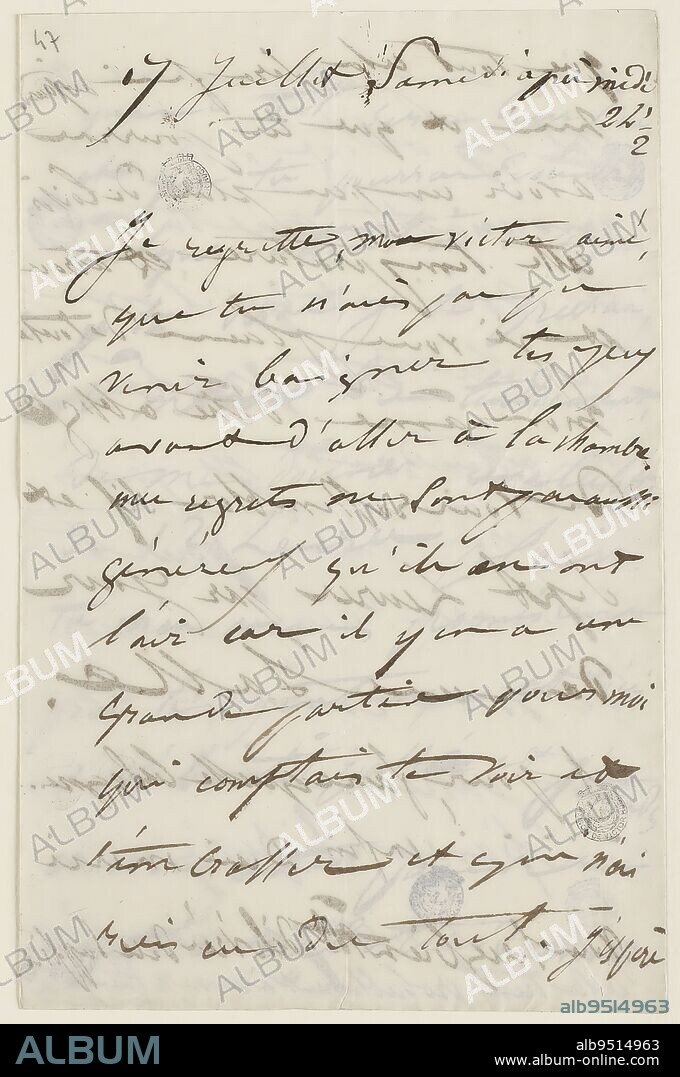 47
17 Juillet Samedi après midi
2 h ½
Je regrette, mon Victor aimé,
que tu n'aies pas pu
venir baigner tes yeux
avant d'aller à la chambre.
mes regrets ne sont pas aussi
généreux qu'ils en ont
l'air car il y en a une
grande partie pour moi
qui comptais te voir et
t'embrasser et qui n'ai
rien eu du tout. J'espère
ALBUM
alb9514963
ALBUM
alb9514963
www.album-online.com